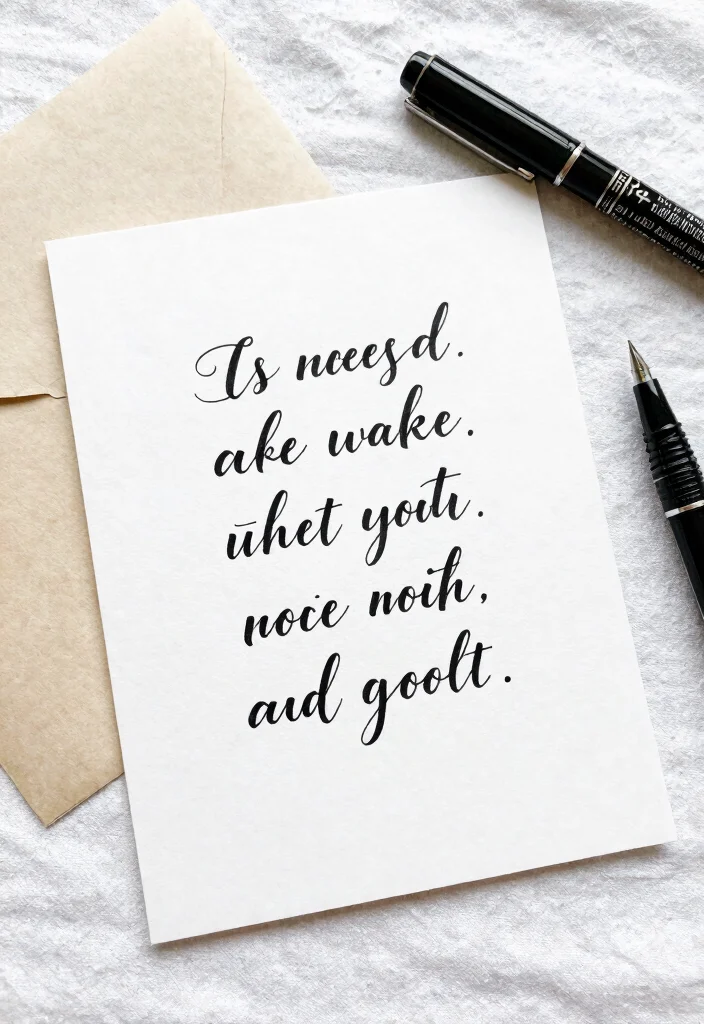 Is nceesd.
ake wake.
ūhet yoitr.
nocie noith,
aud goolt.